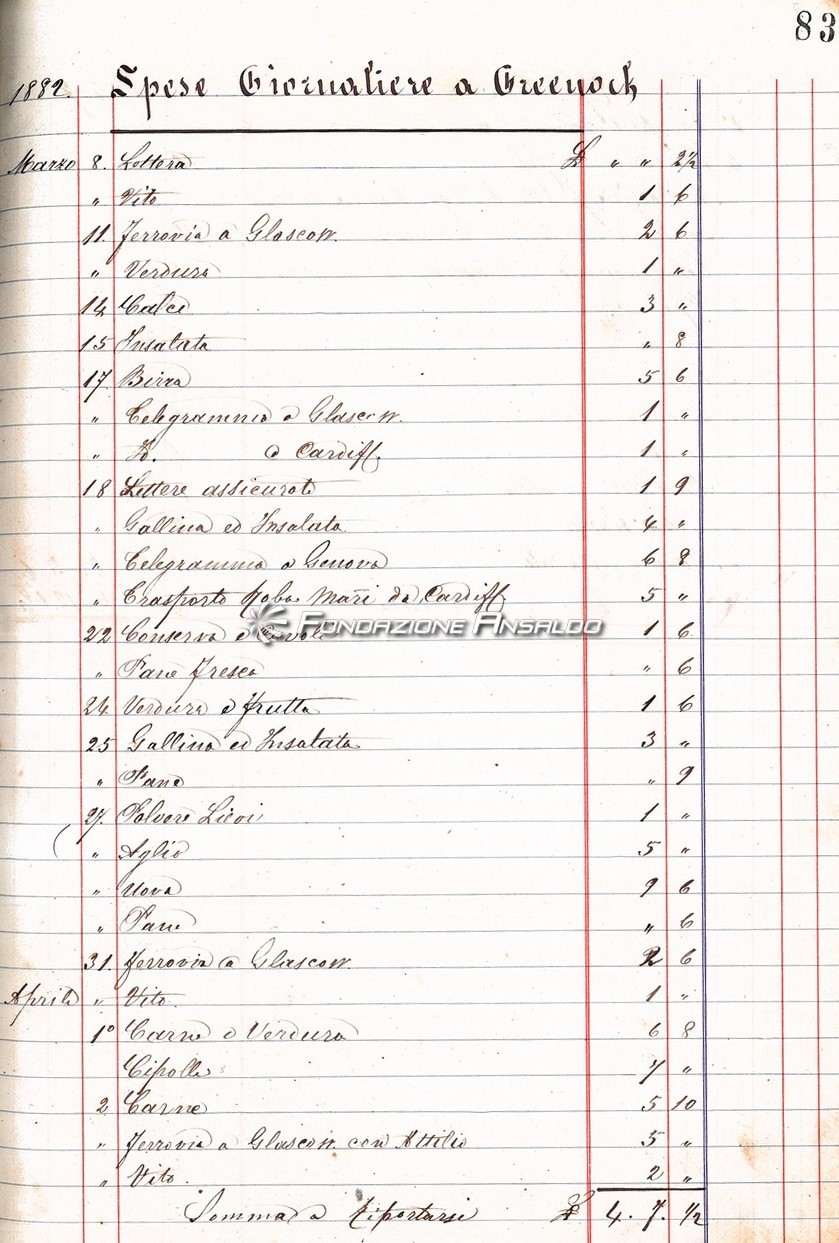 83
1882. Spese Giornaliere a Greenock
Marzo 8. Lettera £ " " 2½
" Vito 1 6
11. Ferrovia a Glascow. 2 6
" Verdura 1 "
14 Calce 3 "
15 Insalata " 8
17 Birra 5 6
" Telegramma a Glascow. 1 "
" D. a Cardiff. 1 "
18 Lettere assicurate 1 9
" Gallina ed Insalata 4 "
" Telegramma a Genova 6 8
" Trasporto Roba Mari da Cardiff 5 "
FONDAZIONE ANSALDO
22 Conserva e 1 6
" Pane fresco " 6
24 Verdura e frutta 1 6
25 Gallina ed Insalata 3 "
" Pane " 9
27. Polvere 1 "
" Aglio 5 "
" Uova 9 6
" Pane " 6
31. Ferrovia a Glascow. 2 6
Aprile " Vito. 1 "
1° Carne e Verdura 6 8
Cipolle 7 "
2 Carne 5 10
" Ferrovia a Glascow con Attilio 5 "
" Vito. 2 "
Somma a riportarsi £ 4. 7. ½